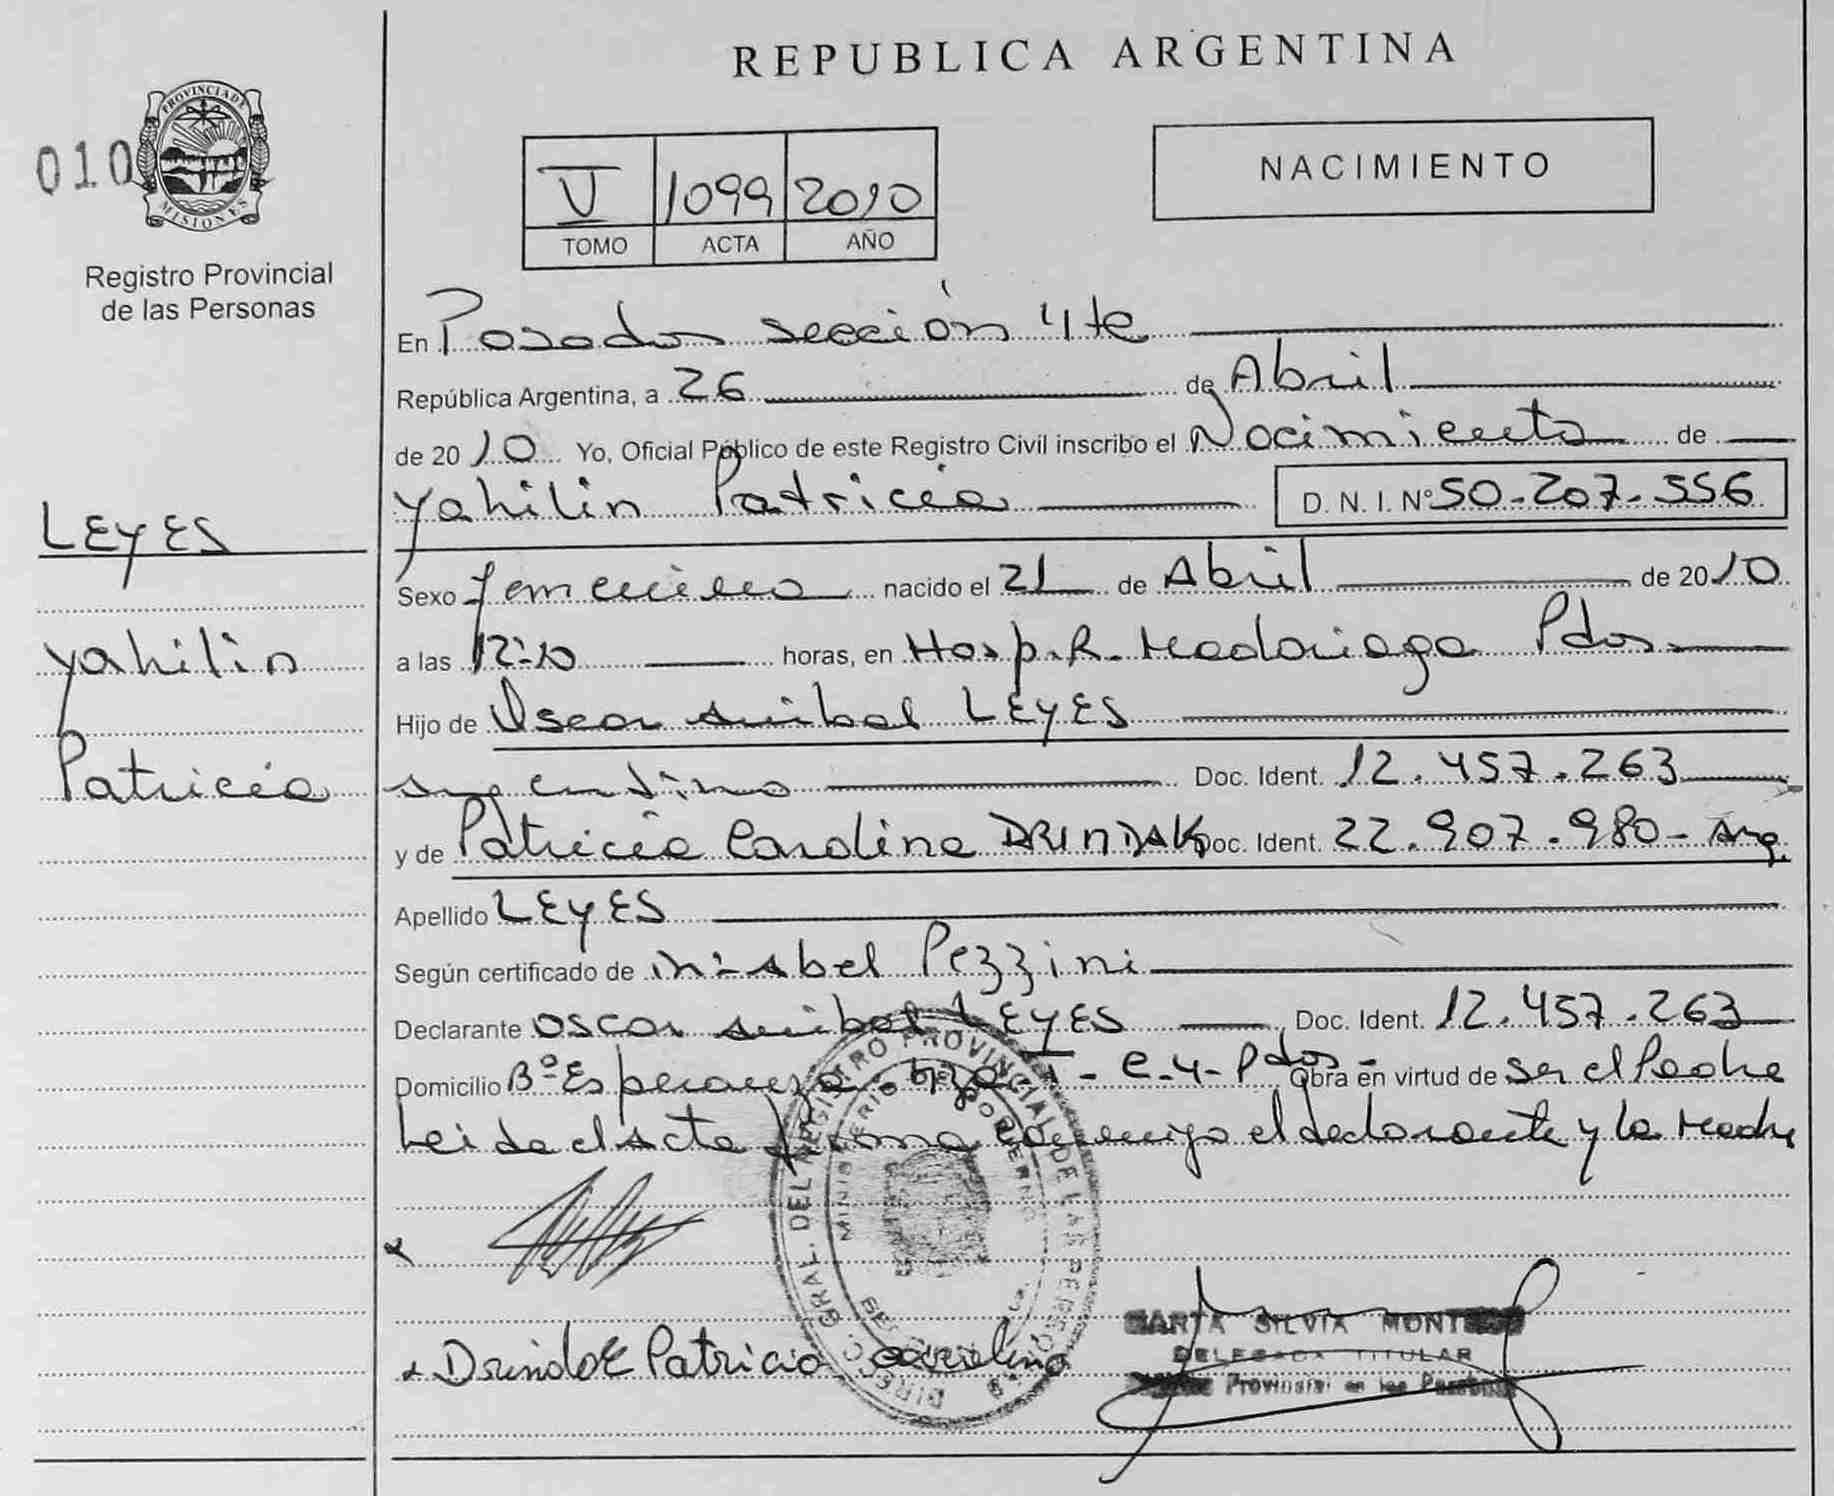 REPUBLICA ARGENTINA
010
PROVINCIA DE
MISIONES
Registro Provincial
de las Personas
V 1099 2010
TOMO ACTA AÑO
NACIMIENTO
En Posadas sección 4te
República Argentina, a 26 de Abril
de 2010 Yo, Oficial Público de este Registro Civil inscribo el Nacimiento de
Yahilin Patricia D. N. I. Nº 50-207-556
LEYES
Yahilin
Patricia
Sexo femenino nacido el 21 de Abril de 2010
a las 12:10 horas, en Hosp. R. Madariaga Pdas
Hijo de Oscar Anibal LEYES
argentino Doc. Ident. 12.457.263
y de Patricia Carolina DRINDAK Doc. Ident. 22.907.980- Arg.
Apellido LEYES
Según certificado de Pezzini
Declarante Oscar Anibal LEYES Doc. Ident. 12.457.263
Domicilio Bº Esperanza C-4-Pdas- Obra en virtud de Ser el Padre
Leida el Acta firma conmigo el declarante y la Madre
DIREC. GRAL. DEL REGISTRO PROVINCIAL DE LAS PERSONAS
MINISTERIO DE GOBIERNO
Drindak Patricia Carolina
SILVIA
DELEGADA TITULAR
Provincial de las Personas